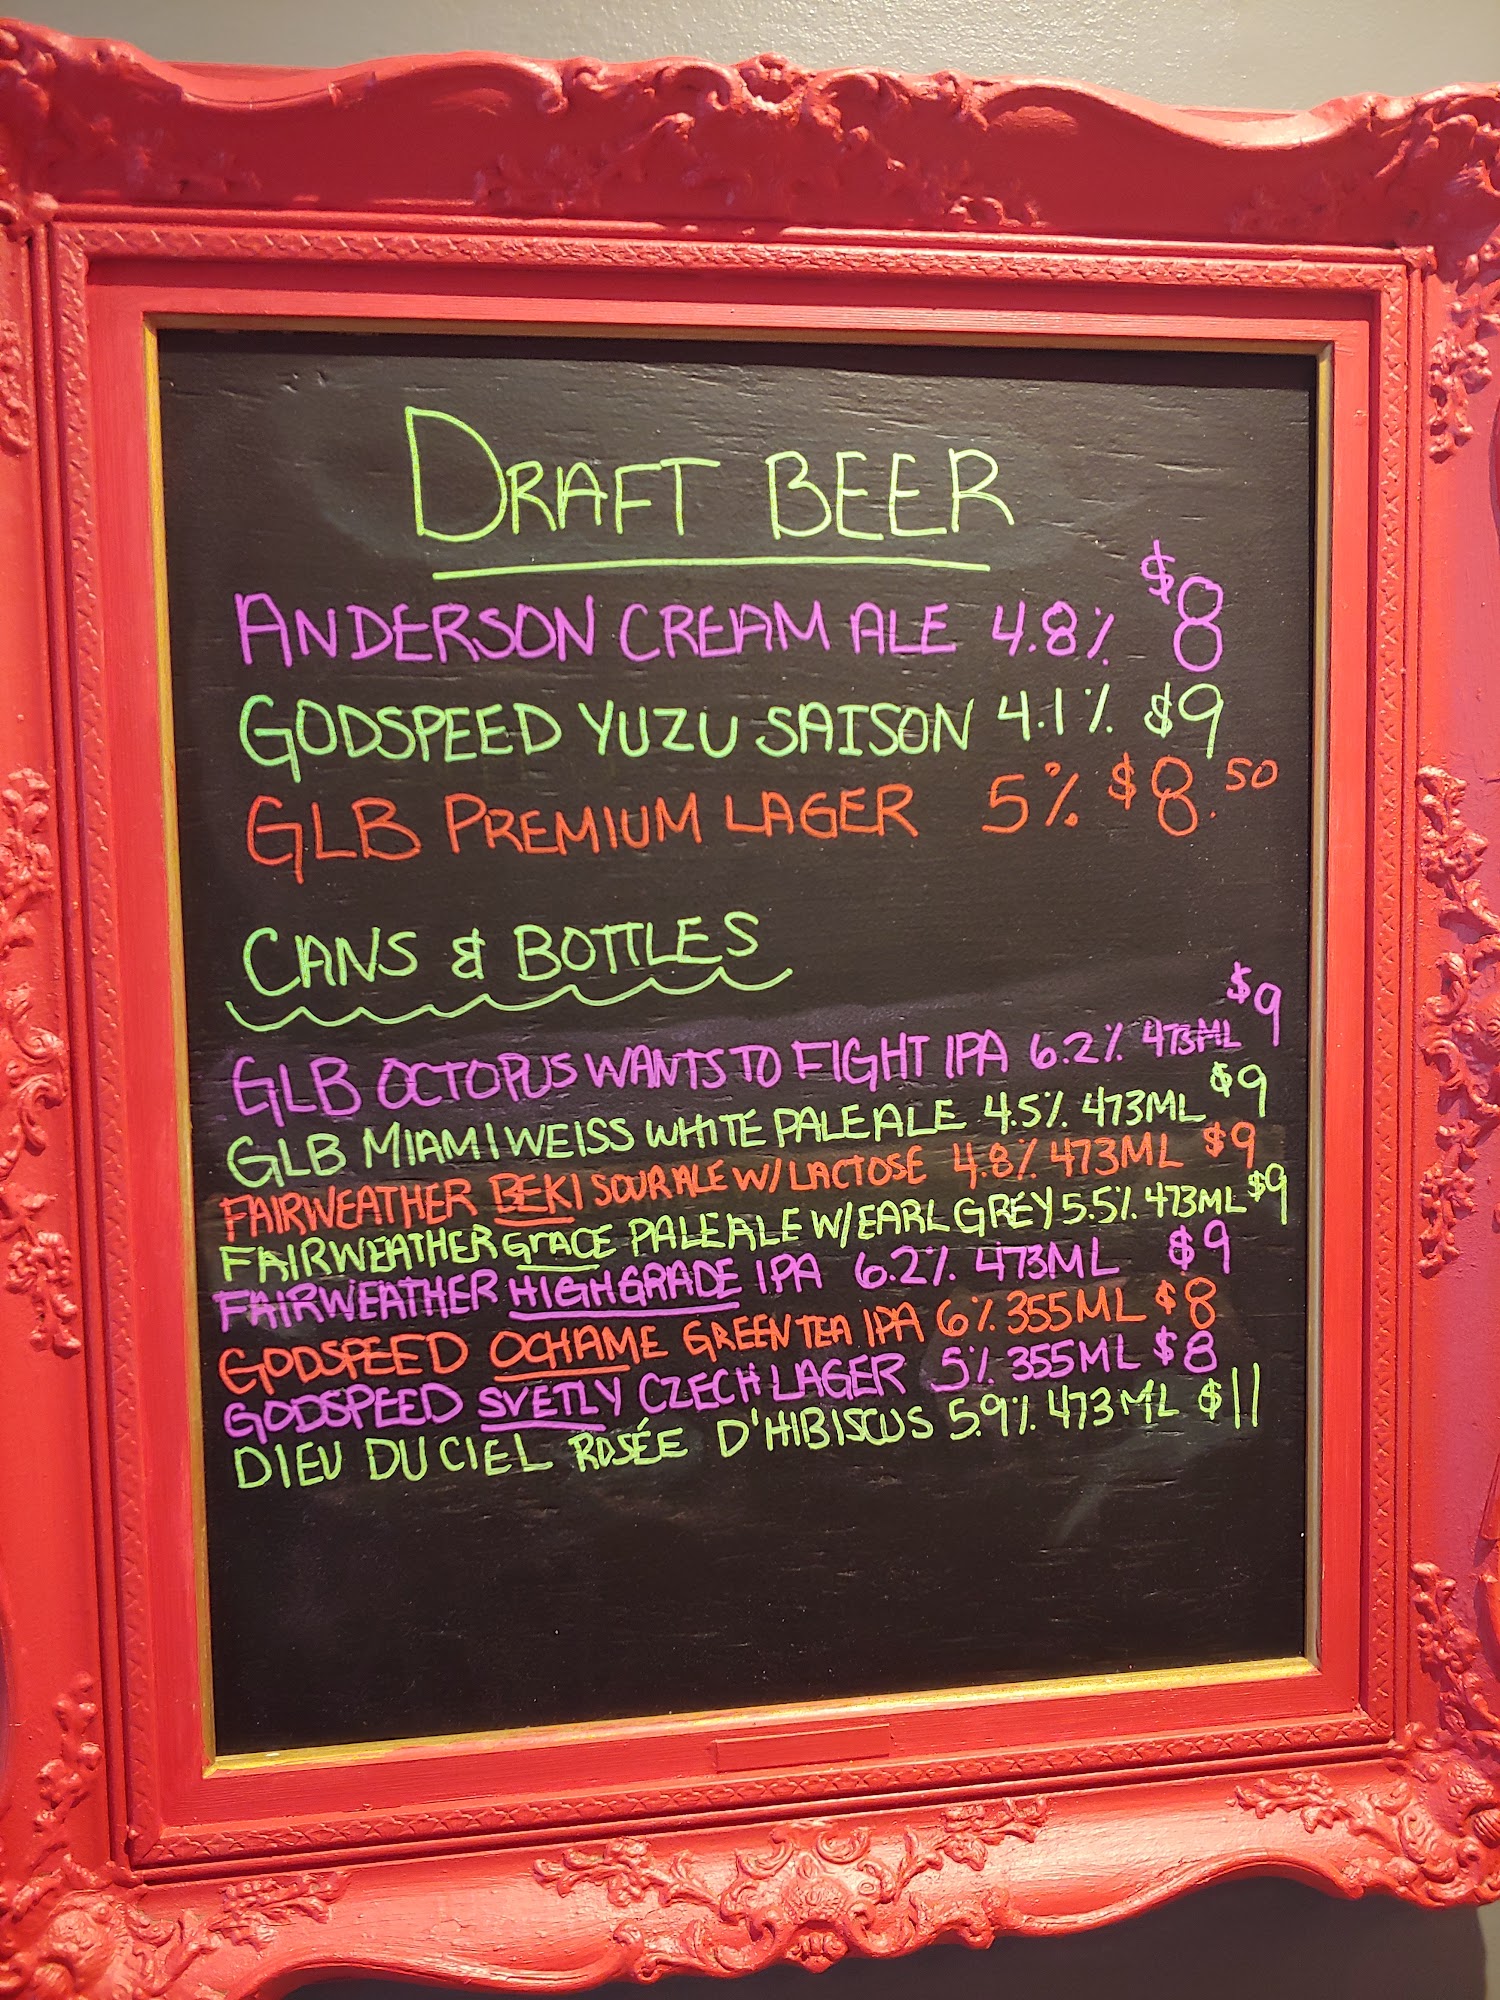 DRAFT BEER
ANDERSON CREAM ALE 4.8% $8
GODSPEED YUZU SAISON 4.1% $9
GLB PREMIUM LAGER 5% $8.50
CANS & BOTTLES
GLB OCTOPUS WANTS TO FIGHT IPA 6.2% 473ML $9
GLB MIAMI WEISS WHITE PALE ALE 4.5% 473ML $9
FAIRWEATHER BEKI SOUR ALE W/ LACTOSE 4.8% 473ML $9
FAIRWEATHER GRACE PALE ALE W/ EARL GREY 5.5% 473ML $9
FAIRWEATHER HIGH GRADE IPA 6.2% 473ML $9
GODSPEED OCHAME GREEN TEA IPA 6% 355ML $8
GODSPEED SVETLY CZECH LAGER 5% 355ML $8
DIEU DU CIEL ROSÉE D'HIBISCUS 5.9% 473ML $11